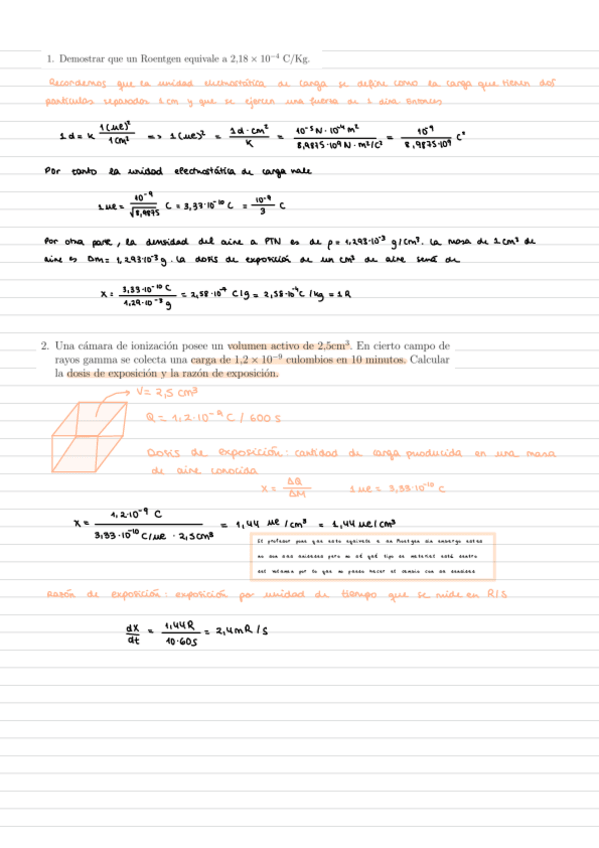 1. Demostrar que un Roentgen equivale a 2,18 × 10⁻⁴ C/Kg.
Recordemos que la unidad electrostática de carga se define como la carga que tienen dos
partículas separadas 1 cm y que se ejercen una fuerza de 1 dina. Entonces
1d = k 1(ue)²/1cm² => 1(ue)² = 1d·cm²/k = 10⁻⁵N·10⁻⁴m²/8,9875·10⁹N·m²/C² = 10⁻⁹/8,9875·10⁹ C²
Por tanto la unidad electrostática de carga vale
1ue = 10⁻⁹/√8,9875 C = 3,33·10⁻¹⁰ C = 10⁻⁹/3 C
Por otra parte, la densidad del aire a PTN es de ρ = 1,293·10⁻³ g/cm³. La masa de 1 cm³ de
aire es Δm = 1,293·10⁻³ g. La dosis de exposición de un cm³ de aire será de
X = 3,33·10⁻¹⁰ C/1,29·10⁻³ g = 2,58·10⁻⁷ C/g = 2,58·10⁻⁴ C/kg = 1R
2. Una cámara de ionización posee un volumen activo de 2,5cm³. En cierto campo de
rayos gamma se colecta una carga de 1,2 × 10⁻⁹ culombios en 10 minutos. Calcular
la dosis de exposición y la razón de exposición.
V = 2,5 cm³
Q = 1,2·10⁻⁹ C / 600 s
Dosis de exposición: cantidad de carga producida en una masa
de aire conocida
X = ΔQ/ΔM 1ue = 3,33·10⁻¹⁰ C
X = 1,2·10⁻⁹ C/3,33·10⁻¹⁰ C/ue · 2,5cm³ = 1,44 ue/cm³ = 1,44 ue/cm³
El profesor pone que esto equivale a un Roentgen sin embargo estas
no son sus unidades pero no sé qué tipo de material está dentro
del volumen por lo que no puedo hacer el cambio con su densidad
Razón de exposición: exposición por unidad de tiempo que se mide en R/S
dX/dt = 1,44R/10·60s = 2,4mR/s